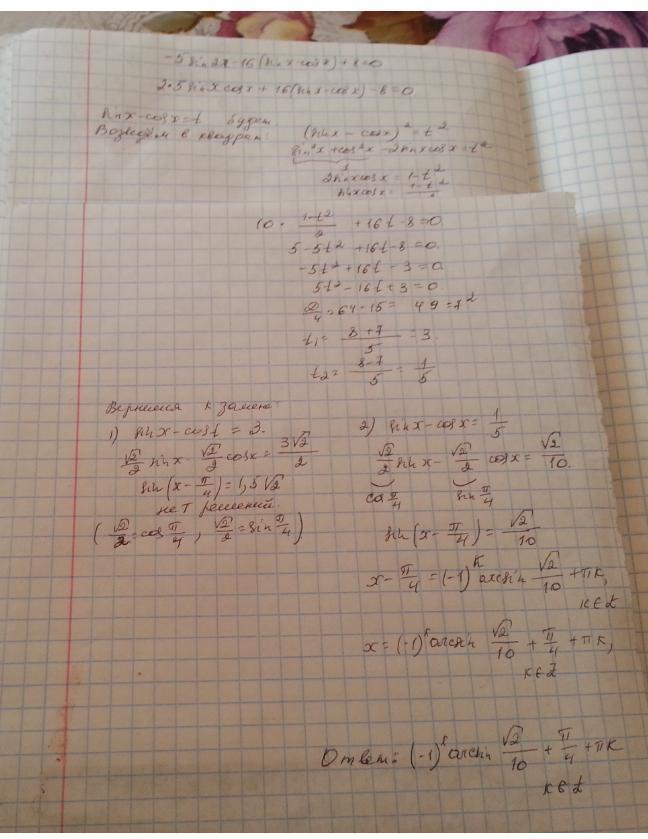 -5 sin 2x - 16(sin x - cos x) + 8 = 0
2·5 sin x cos x + 16(sin x - cos x) - 8 = 0
sin x - cos x = t будет
Возведём в квадрат: (sin x - cos x)² = t²
sin²x + cos²x - 2 sin x cos x = t²
1
2 sin x cos x = 1 - t²
sin x cos x = (1 - t²)/2
10 · (1 - t²)/2 + 16t - 8 = 0
5 - 5t² + 16t - 8 = 0.
-5t² + 16t - 3 = 0
5t² - 16t + 3 = 0
D/4 = 64 - 15 = 49 = 7²
t₁ = (8 + 7)/5 = 3.
t₂ = (8 - 7)/5 = 1/5
Вернемся к замене:
1) sin x - cos t = 3.
√2/2 sin x - √2/2 cos x = 3√2/2
sin(x - π/4) = 1,5√2
нет решений.
(√2/2 = cos π/4, √2/2 = sin π/4)
2) sin x - cos x = 1/5
√2/2 sin x - √2/2 cos x = √2/10.
cos π/4 sin π/4
sin(x - π/4) = √2/10
x - π/4 = (-1)ᵏ arcsin √2/10 + πk,
k ∈ Z
x = (-1)ᵏ arcsin √2/10 + π/4 + πk,
k ∈ Z
Ответ: (-1)ᵏ arcsin √2/10 + π/4 + πk
k ∈ Z